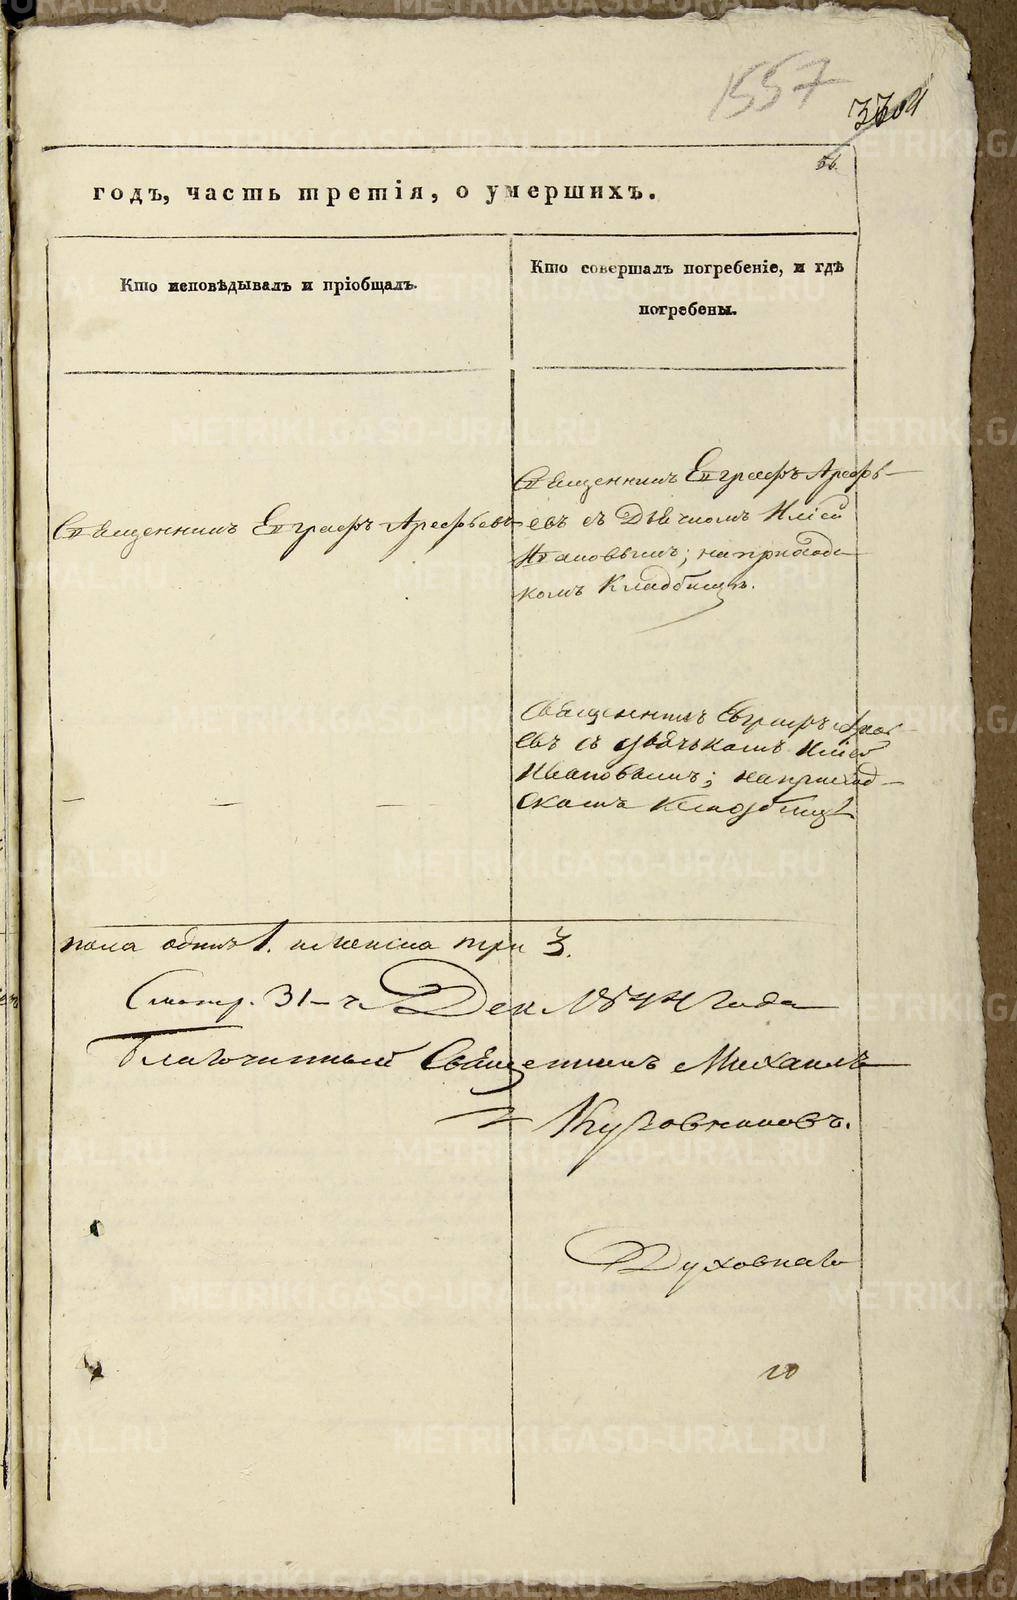 1557
3304
56.
годъ, часть третія, о умершихъ.
Кто исповѣдывалъ и пріобщалъ.
Кто совершалъ погребеніе, и гдѣ
погребены.
Священникъ Евграфъ Арефьевъ
Священникъ Евграфъ Арефь-
евъ съ Дьячкомъ Иліей
Ивановымъ; на приход-
комъ Кладбищѣ.
Священникъ Евграфъ
евъ съ дьячькомъ Иліей
Ивановымъ; на приход-
скомъ Кладбищѣ
пола одинъ 1. женска три 3.
31-ч Дек 1844 года
Благочинный Священникъ Михаилъ
Духовнаго
METRIKI.GASO-URAL.RU